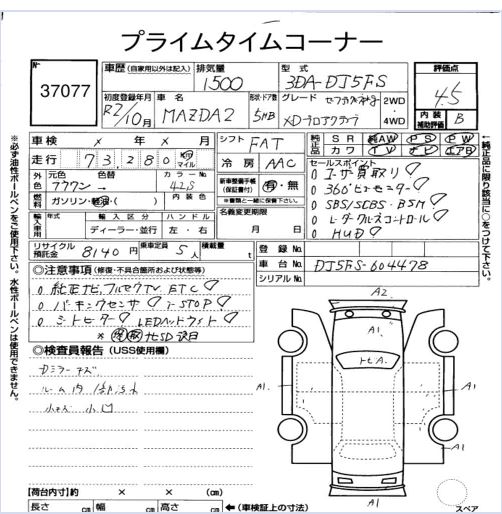 プライムタイムコーナー
No 37077
車歴 (自家用以外は記入) 排気量 1500
型式 3DA-DJ5FS
評価点 4.5
内装補助評価 B
初度登録年月 R2/10月
車名 MAZDA2
形状・ドア数 5HB
グレード XDプロアクティブ
2WD
4WD
車検 × 年 × 月
シフト FAT
純正品 SR 純AW PS PW
カワ TV ナビ エアB
走行 73,280 km マイル
冷房 AAC
セールスポイント
外色 元色 色替 カラーNo.
→ 42S
0 ユーザー買取り
0 360°ビューモニター
0 SBS/SCBS・BSM
0 レーダークルズコントロール
0 HUD
燃料 ガソリン・軽油・( ) 内装色
新車整備手帳(保証書付) 有・無
輸入車用 年式 輸入区分 ハンドル
ディーラー・並行 左・右
名義変更期限
月 日
リサイクル預託金 8140 円 乗車定員 5 人 積載量 t
登録No.
車台No. DJ5FS-604478
シリアルNo.
◎注意事項 (修復・不具合箇所および状態等)
0 純正ナビ,フルセグTV ETC
0 パーキングセンサ i-STOP
0 シートヒーター LEDヘッドライト
◎検査員報告 (USS使用欄)
ドミラーキズ
小キズ 小凹
A2
A1
A1
A1
A1
ヒA
A1
【荷台内寸】約 × × (cm)
長さ cm 幅 cm 高さ cm ←(車検証上の寸法)
スペア
※必ず油性ボールペンをご使用下さい。水性ボールペンは使用できません。